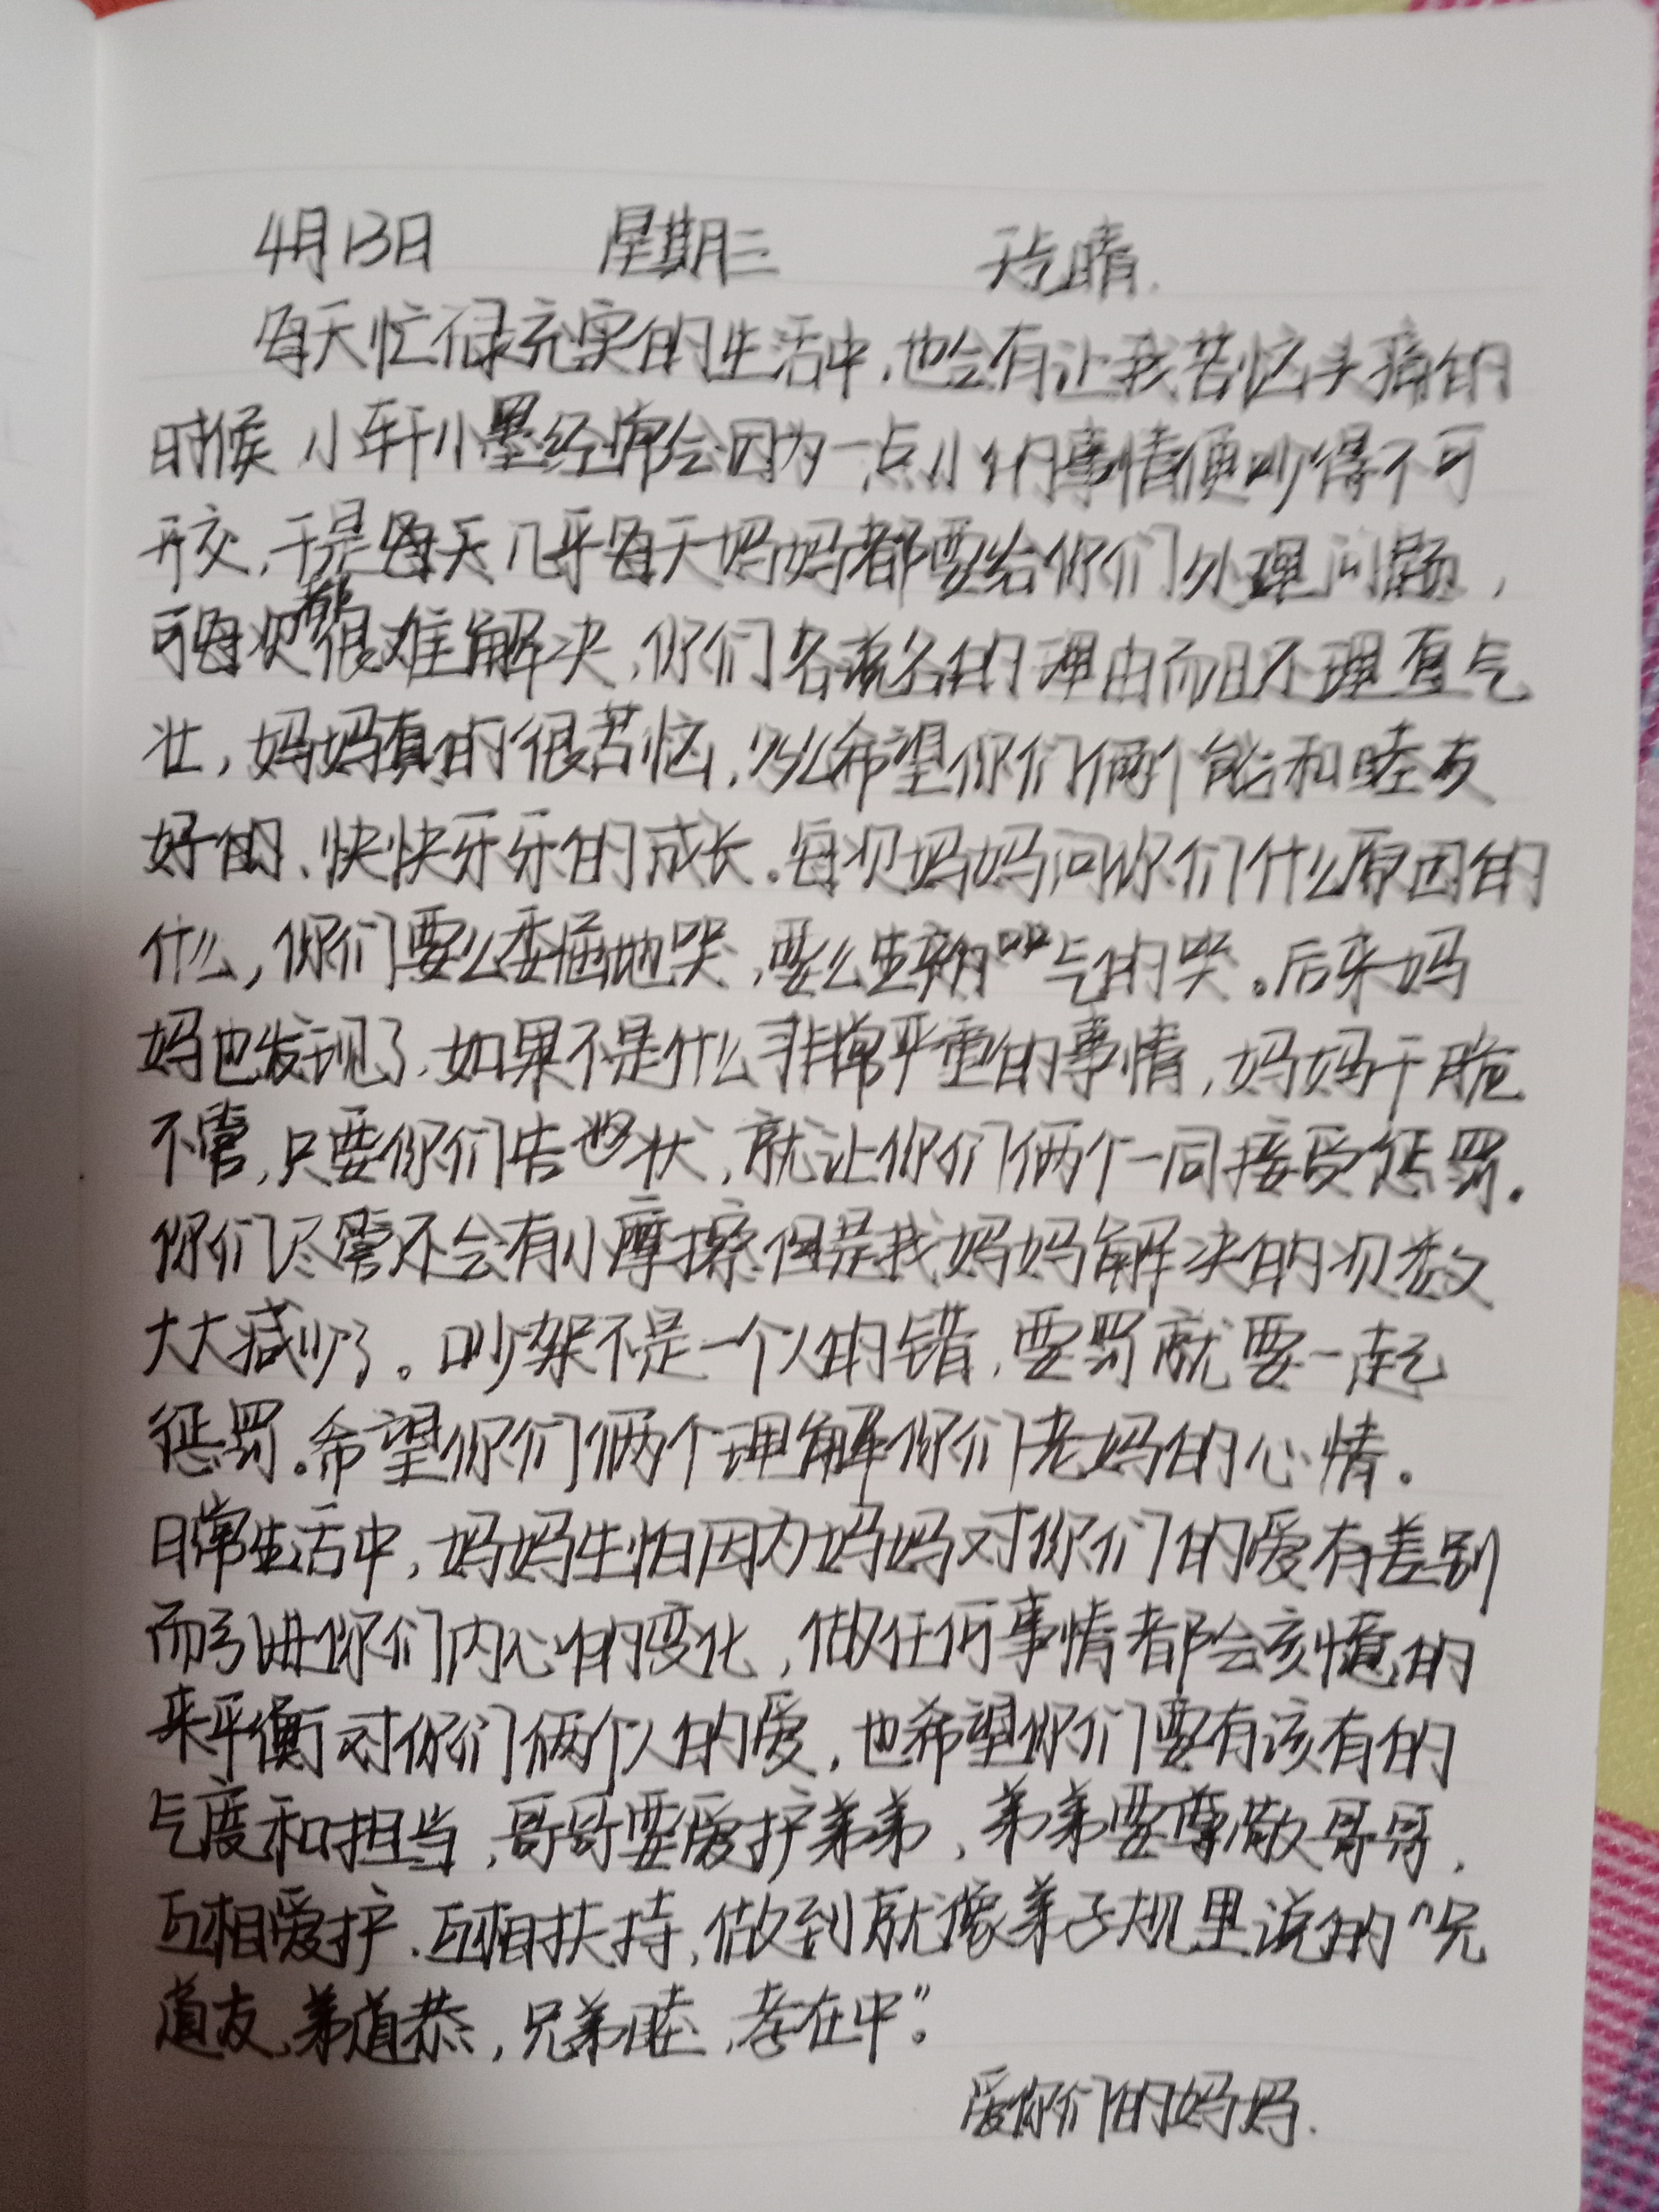 4月13日 星期三 天气晴.
每天忙碌充实的生活中,也会有让我苦恼头痛的
时候 小轩小墨经常会因为一点小的事情便吵得不可
开交,于是每天几乎每天妈妈都要给你们处理问题,
可每次都很难解决,你们各说各的理由而且还理直气
壮,妈妈真的很苦恼,多么希望你们俩个能和睦友
好的、快快牙牙的成长。每次妈妈问你们什么原因的
什么,你们要么委屈地哭,要么生气的哭。后来妈
妈也发现了,如果不是什么非常严重的事情,妈妈干脆
不管,只要你们告状,就让你们俩个一同接受惩罚.
你们尽管还会有小摩擦但是找妈妈解决的次数
大大减少了。吵架不是一个人的错,要罚就要一起
惩罚.希望你们俩个理解你们老妈的心情.
日常生活中,妈妈生怕因为妈妈对你们的爱有差别
而引进你们内心的变化,做任何事情都会刻意的
来平衡对你们俩个人的爱,也希望你们要有该有的
气度和担当,哥哥要爱护弟弟,弟弟要尊敬哥哥,
互相爱护.互相扶持,做到就像弟子规里说的"兄
道友,弟道恭,兄弟睦,孝在中"。
爱你们的妈妈.